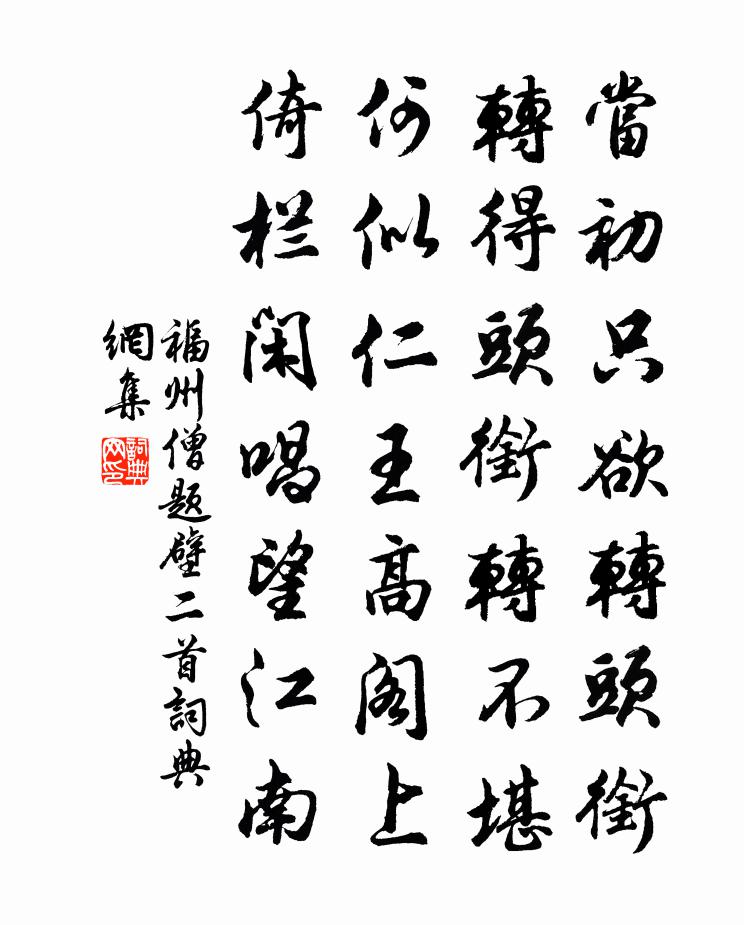 當初只欲轉頭銜
轉得頭銜轉不堪
何似仁王高阁上
倚栏闲唱望江南
福州僧题壁二首詞典
網集
詞典網印